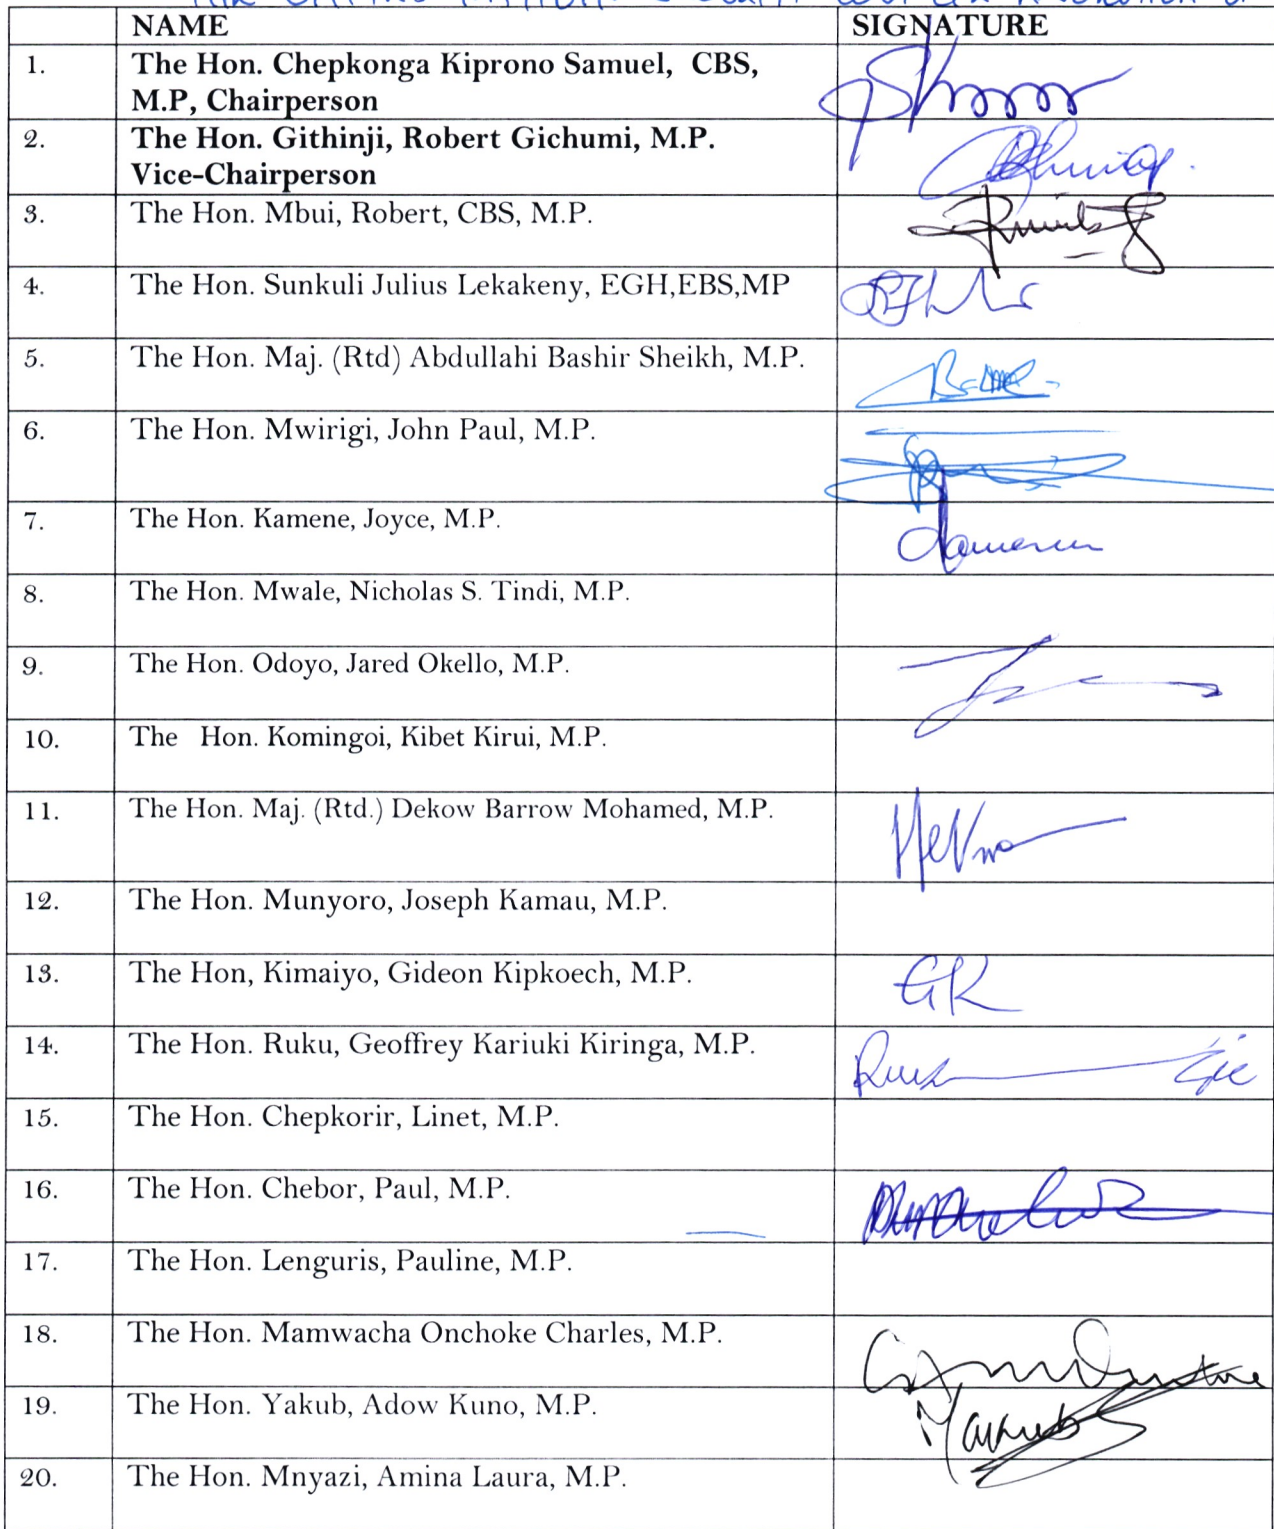 NAME SIGNATURE
1. The Hon. Chepkonga Kiprono Samuel, CBS,
M.P, Chairperson
2. The Hon. Githinji, Robert Gichumi, M.P.
Vice-Chairperson
3. The Hon. Mbui, Robert, CBS, M.P.
4. The Hon. Sunkuli Julius Lekakeny, EGH,EBS,MP
5. The Hon. Maj. (Rtd) Abdullahi Bashir Sheikh, M.P.
6. The Hon. Mwirigi, John Paul, M.P.
7. The Hon. Kamene, Joyce, M.P.
8. The Hon. Mwale, Nicholas S. Tindi, M.P.
9. The Hon. Odoyo, Jared Okello, M.P.
10. The Hon. Komingoi, Kibet Kirui, M.P.
11. The Hon. Maj. (Rtd.) Dekow Barrow Mohamed, M.P.
12. The Hon. Munyoro, Joseph Kamau, M.P.
13. The Hon, Kimaiyo, Gideon Kipkoech, M.P.
GK
14. The Hon. Ruku, Geoffrey Kariuki Kiringa, M.P.
15. The Hon. Chepkorir, Linet, M.P.
16. The Hon. Chebor, Paul, M.P.
17. The Hon. Lenguris, Pauline, M.P.
18. The Hon. Mamwacha Onchoke Charles, M.P.
19. The Hon. Yakub, Adow Kuno, M.P.
20. The Hon. Mnyazi, Amina Laura, M.P.